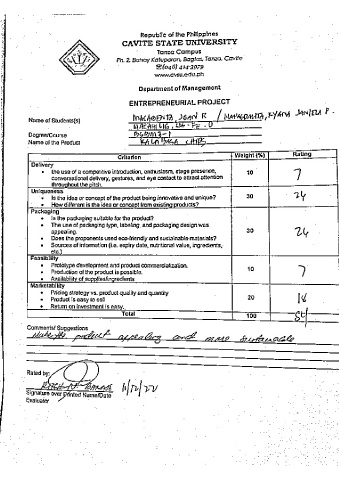 Republic of the Philippines
CAVITE STATE UNIVERSITY
Tanza Campus
Ph. 2, Bahay Katuparan, Bagtas, Tanza, Cavite
(046) 414-3979
www.cvsu.edu.ph
Department of Management
ENTREPRENEURIAL PROJECT
Name of Student(s)
Degree/Course
Name of the Product KALABASA CHIPS
Criterion Weight (%) Rating
Delivery
• the use of a competitive introduction, enthusiasm, stage presence, conversational delivery, gestures, and eye contact to attract attention throughout the pitch. 10 7
Uniqueness
• Is the idea or concept of the product being innovative and unique? 30 24
• How different is the idea or concept from existing products?
Packaging
• Is the packaging suitable for the product?
• The use of packaging type, labeling, and packaging design was appealing. 30
• Does the proponents used eco-friendly and sustainable materials?
• Sources of information (i.e. expiry date, nutritional value, ingredients, etc.)
Feasibility
• Prototype development and product commercialization. 10 7
• Production of the product is possible.
• Availability of supplies/ingredients
Marketability
• Pricing strategy vs. product quality and quantity
• Product is easy to sell 20
• Return on investment is easy.
Total 100
Comments/ Suggestions
product appealing and more sustainable
Rated by:
Signature over Printed Name/Date
Evaluator